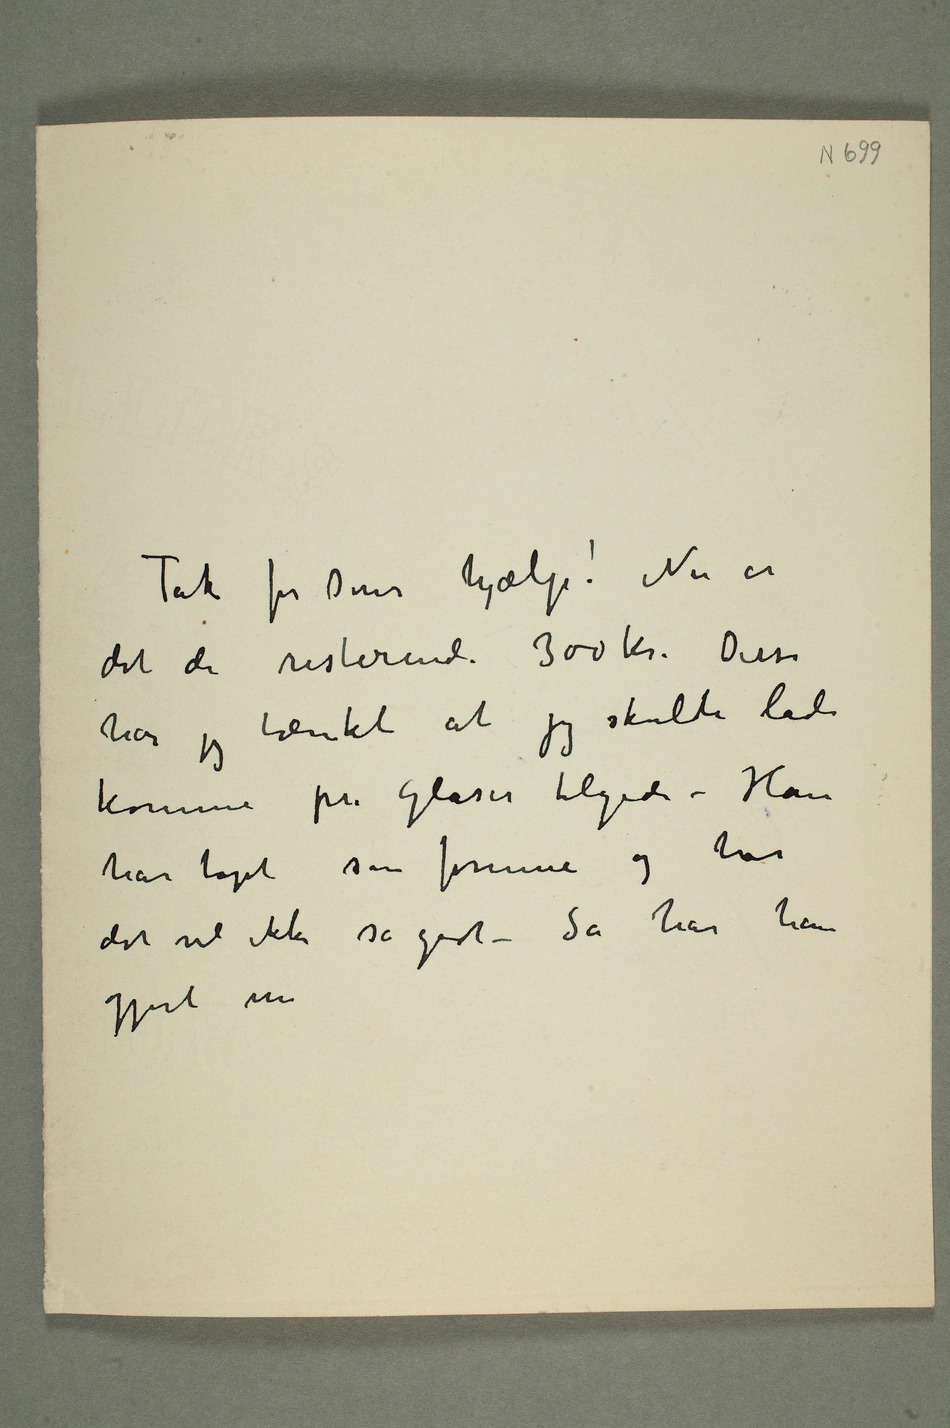 N 699
Tak for Deres hjælp! Nu er
det de resterende 300 kr. Disse
har jeg tænkt at jeg skulde lade
komme fru Glaser tilgode – Han
har tapt sin formue og har
det vel ikke så godt – Så har han
gjort